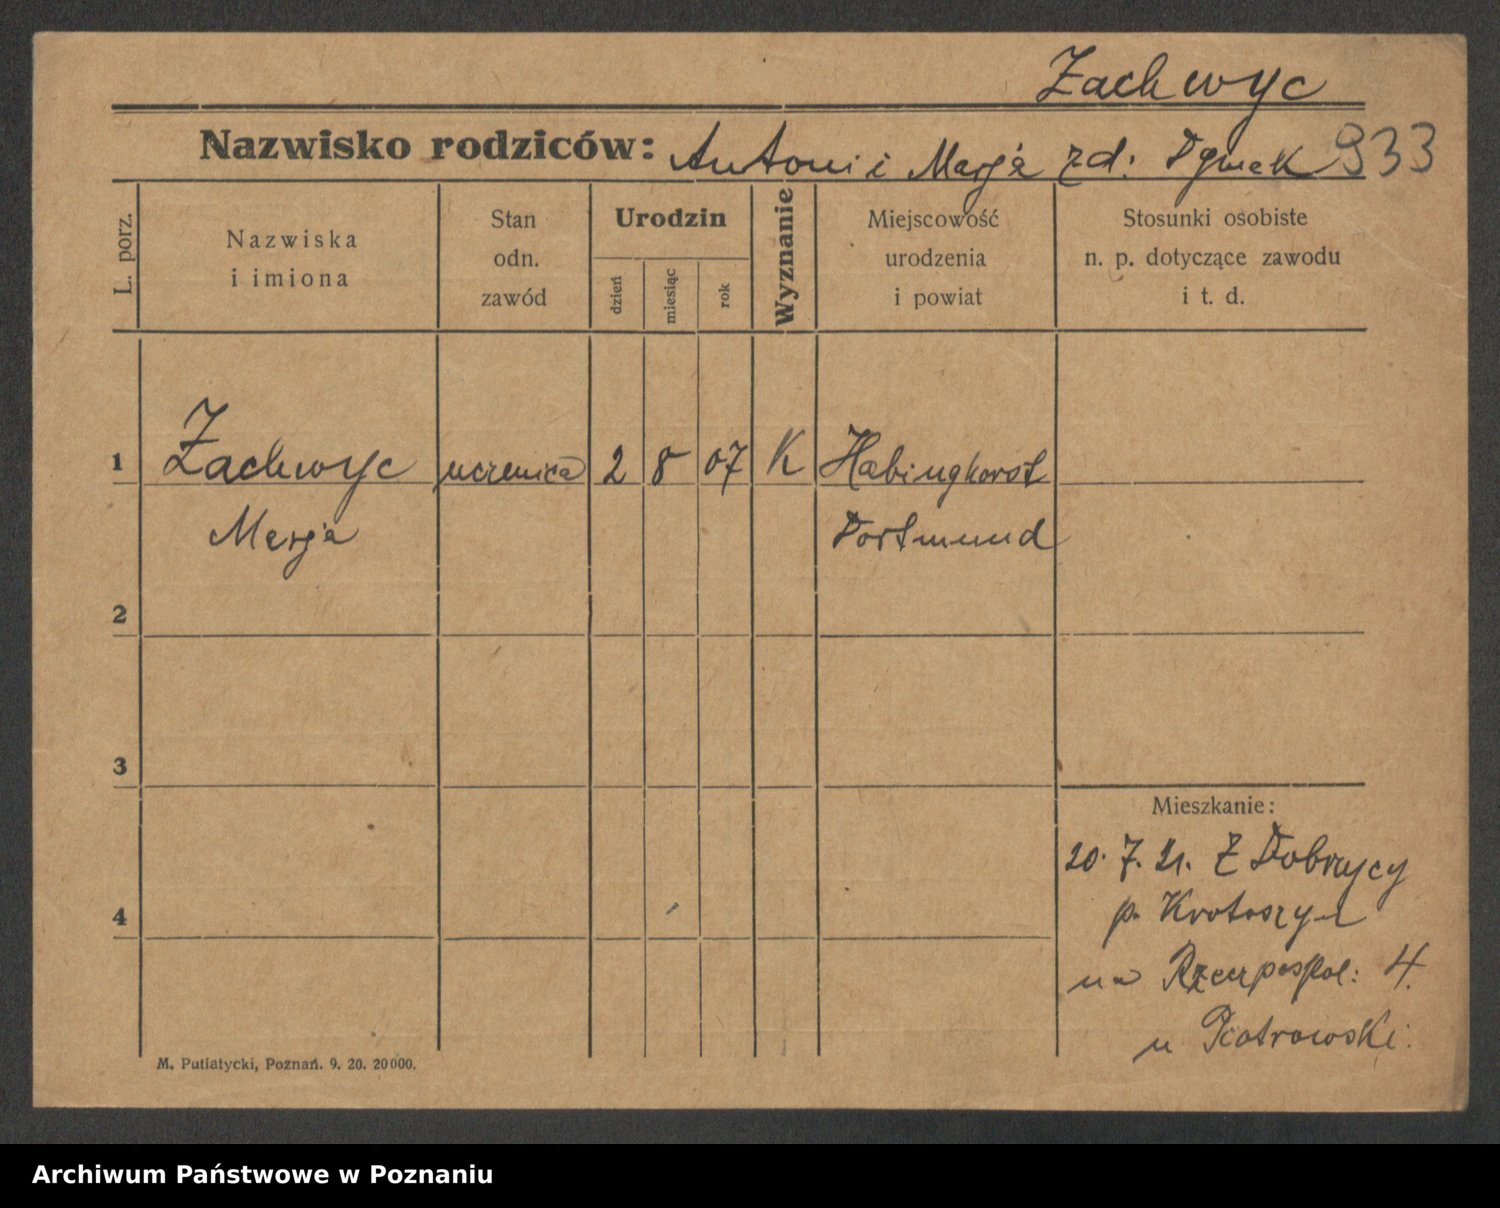 Zachwyc
Nazwisko rodziców: Antoni i Marja zd: 933
L. porz.
Nazwiska
i imiona
Stan
odn.
zawód
Urodzin
dzień
miesiąc
rok
Wyznanie
Miejscowość
urodzenia
i powiat
Stosunki osobiste
n. p. dotyczące zawodu
i t. d.
1 Zachwyc uczenica 2 8 07 K Habinghorst
Marja Dortmund
2
3
Mieszkanie:
20. 7. 21. Z Dobrzycy
4 p. Krotoszyn
na Rzeczpospol: 4.
u Piotrowski.
M. Putiatycki, Poznań. 9. 20. 20000.
Archiwum Państwowe w Poznaniu